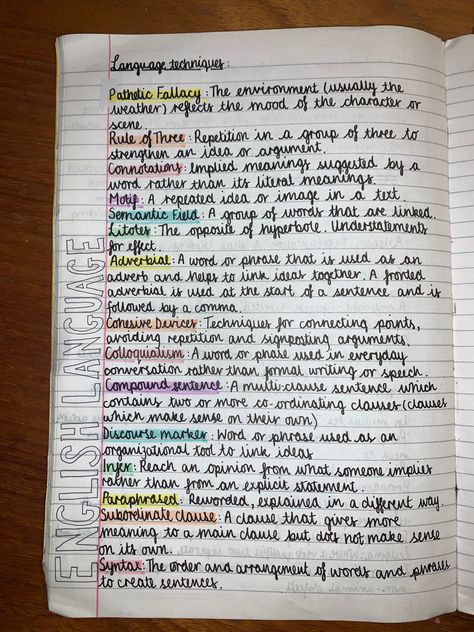 Language techniques:
Pathetic Fallacy: The environment (usually the
weather) reflects the mood of the character or
scene
Rule of Three: Repetition in a group of three to
strengthen an idea or argument.
Connotations: Implied meanings suggested by a
word rather than its literal meanings.
Motif: A repeated idea or image in a text.
Semantic Field: A group of words that are linked.
Litotes: The opposite of hyperbole. Understatements
for effect.
Adverbial: A word or phrase that is used as an
advert and helps to link ideas together. A fronted
adverbial is used at the start of a sentence and is
followed by a comma.
Cohesive Devices: Techniques for connecting points,
avoiding repetition and signposting arguments.
Colloquialism: A word or phase used in everyday
conversation rather than formal writing or speech.
Compound sentence: A multi-clause sentence which
contains two or more co-ordinating clauses (clauses
which make sense on their own)
Discourse marker: Word or phrase used as an
organizational tool to link ideas
Infer: Reach an opinion from what someone implies
rather than from an explicit statement.
Paraphrased: Reworded, explained in a different way.
Subordinate clause: A clause that gives more
meaning to a main clause but does not make sense
on its own.
Syntax: The order and arrangement of words and phrases
to create sentences.
ENGLISH LANGUAGE